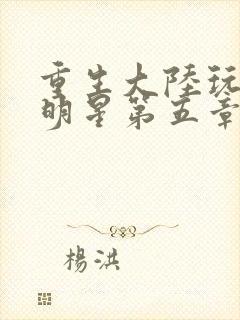 重生大陸玩
明星第五章
楊洪